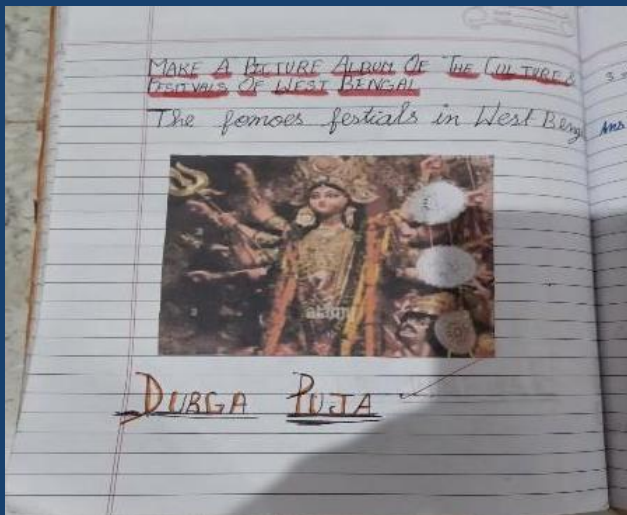 MAKE A PICTURE ALBUM OF THE CULTURE &
FESTIVALS OF WEST BENGAL
The fomoes festials in West Beng
DURGA PUJA
3
Ans